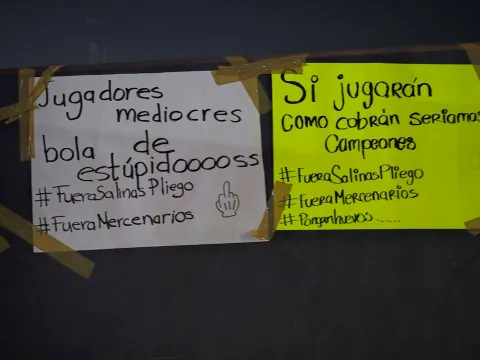 Jugadores
mediocres
bola de
estúpidooooss
#FueraSalinasPliego
#FueraMercenarios
Si jugarán
como cobrán seriamos
Campeones
#FueraSalinasPliego
#FueraMercenarios
#Ponganhuevos.....